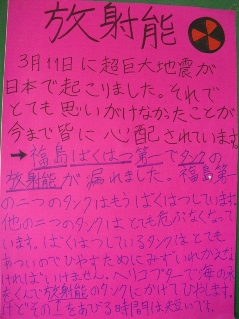 放射能
3月11日に超巨大地震が
日本で起こりました。それで
とても思いがけなかったことが
今まで皆に心配されています。
→福島ばくはつ第一でタンクの
放射能が漏れました。福島第一
の二つのタンクはもうばくはつしています。
他の二つのタンクはとても危ぶなくなって
います。ばくはつしているタンクはとても
あついのでひやすためにみずいれかえな
ければいけません。ヘリコプターで海の水
をくんで放射能のタンクにかけてひやします。
けどその
をあびる時間は短いです。